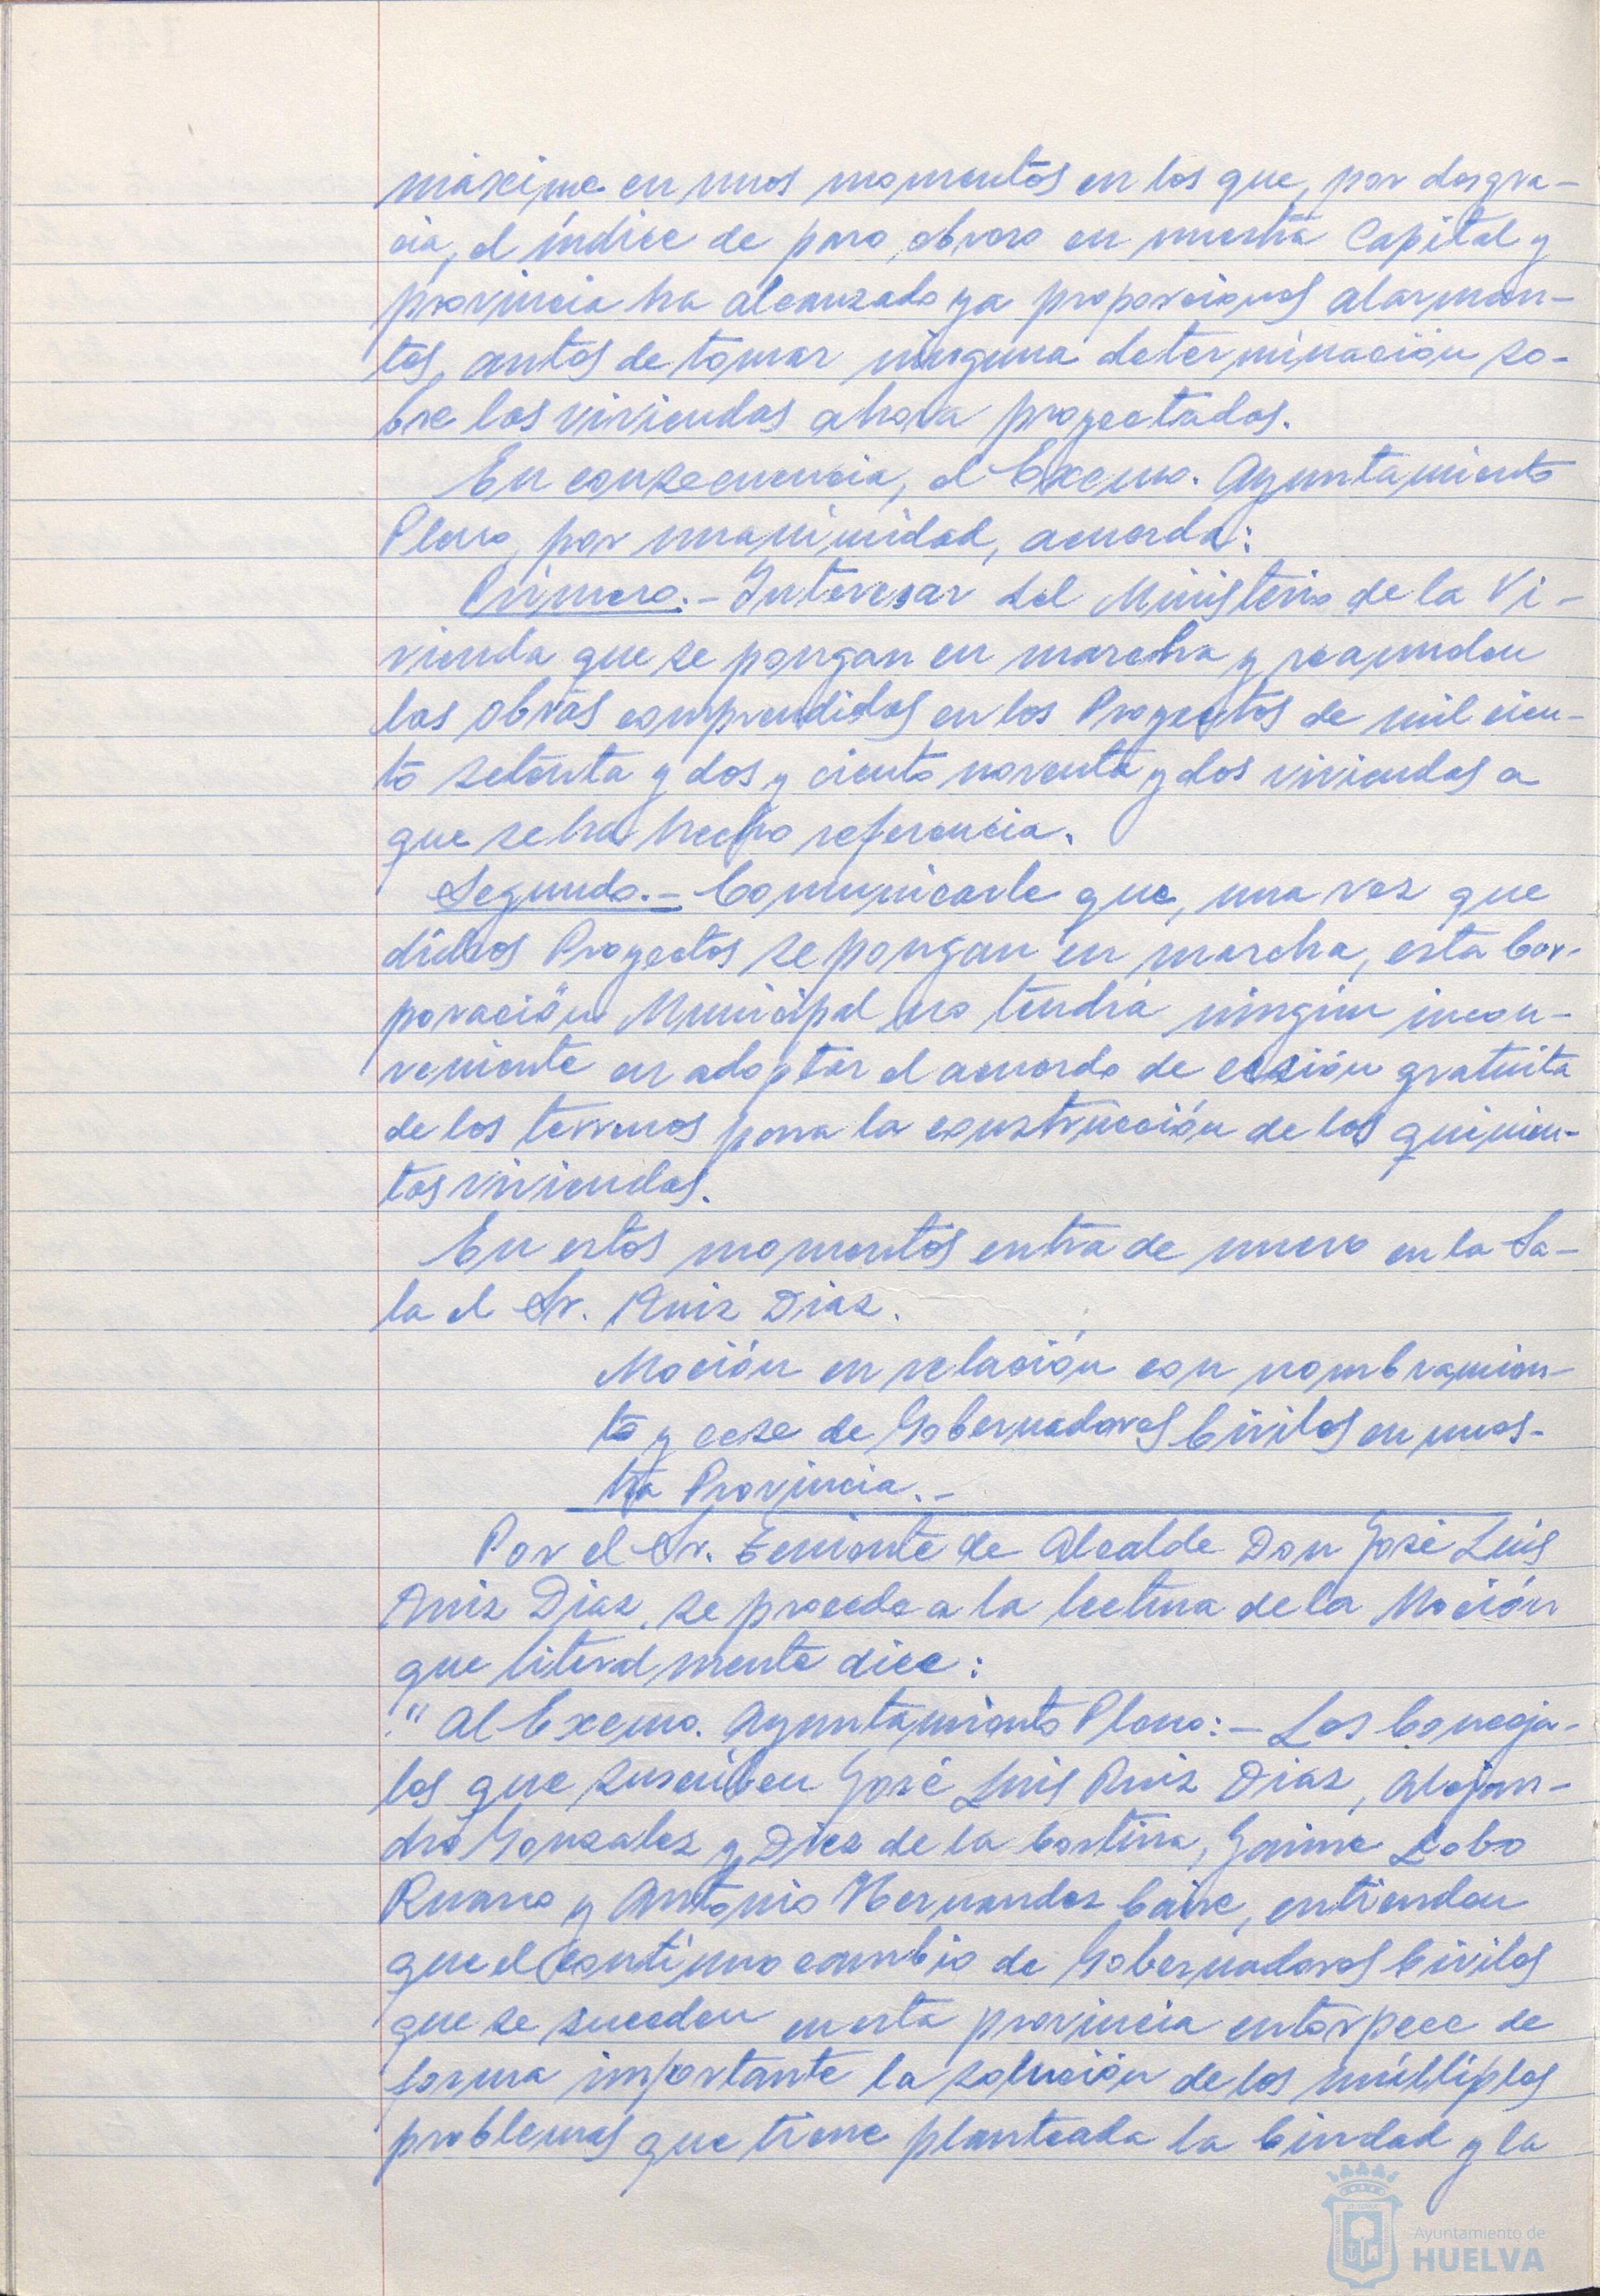 máxime en unos momentos en los que, por desgra-
cia, el índice de paro obrero en nuestra Capital y
provincia ha alcanzado ya proporciones alarman-
tes, antes de tomar ninguna determinación so-
bre las viviendas ahora proyectadas.
En consecuencia, el Excmo. Ayuntamiento
Pleno, por unanimidad, acuerda:
Primero.- Interesar del Ministerio de la Vi-
vienda que se pongan en marcha y reanuden
las obras comprendidas en los Proyectos de mil cien-
to setenta y dos y ciento noventa y dos viviendas a
que se ha hecho referencia.
Segundo.- Comunicarle que, una vez que
dichos Proyectos se pongan en marcha, esta Cor-
poración Municipal no tendrá ningún incon-
veniente en adoptar el acuerdo de cesión gratuita
de los terrenos para la construcción de las quinien-
tas viviendas.
En estos momentos entra de nuevo en la Sa-
la el Sr. Ruiz Diaz.
Moción en relación con nombramien-
to y cese de Gobernadores Civiles en nues-
tra Provincia.-
Por el Sr. Teniente de Alcalde Don José Luis
Ruiz Diaz, se procede a la lectura de la Moción
que literalmente dice:
"Al Excmo. Ayuntamiento Pleno:- Los Conceja-
les que suscriben José Luis Ruiz Diaz, Alejan-
dro Gonzalez y Diez de la Cortina, Jaime Lobo
Ruano y Antonio Hernandez Caire, entienden
que el continuo cambio de Gobernadores Civiles
que se suceden en esta provincia entorpece de
forma importante la solución de los múltiples
problemas que tiene planteada la Ciudad y la
Ayuntamiento de
HUELVA